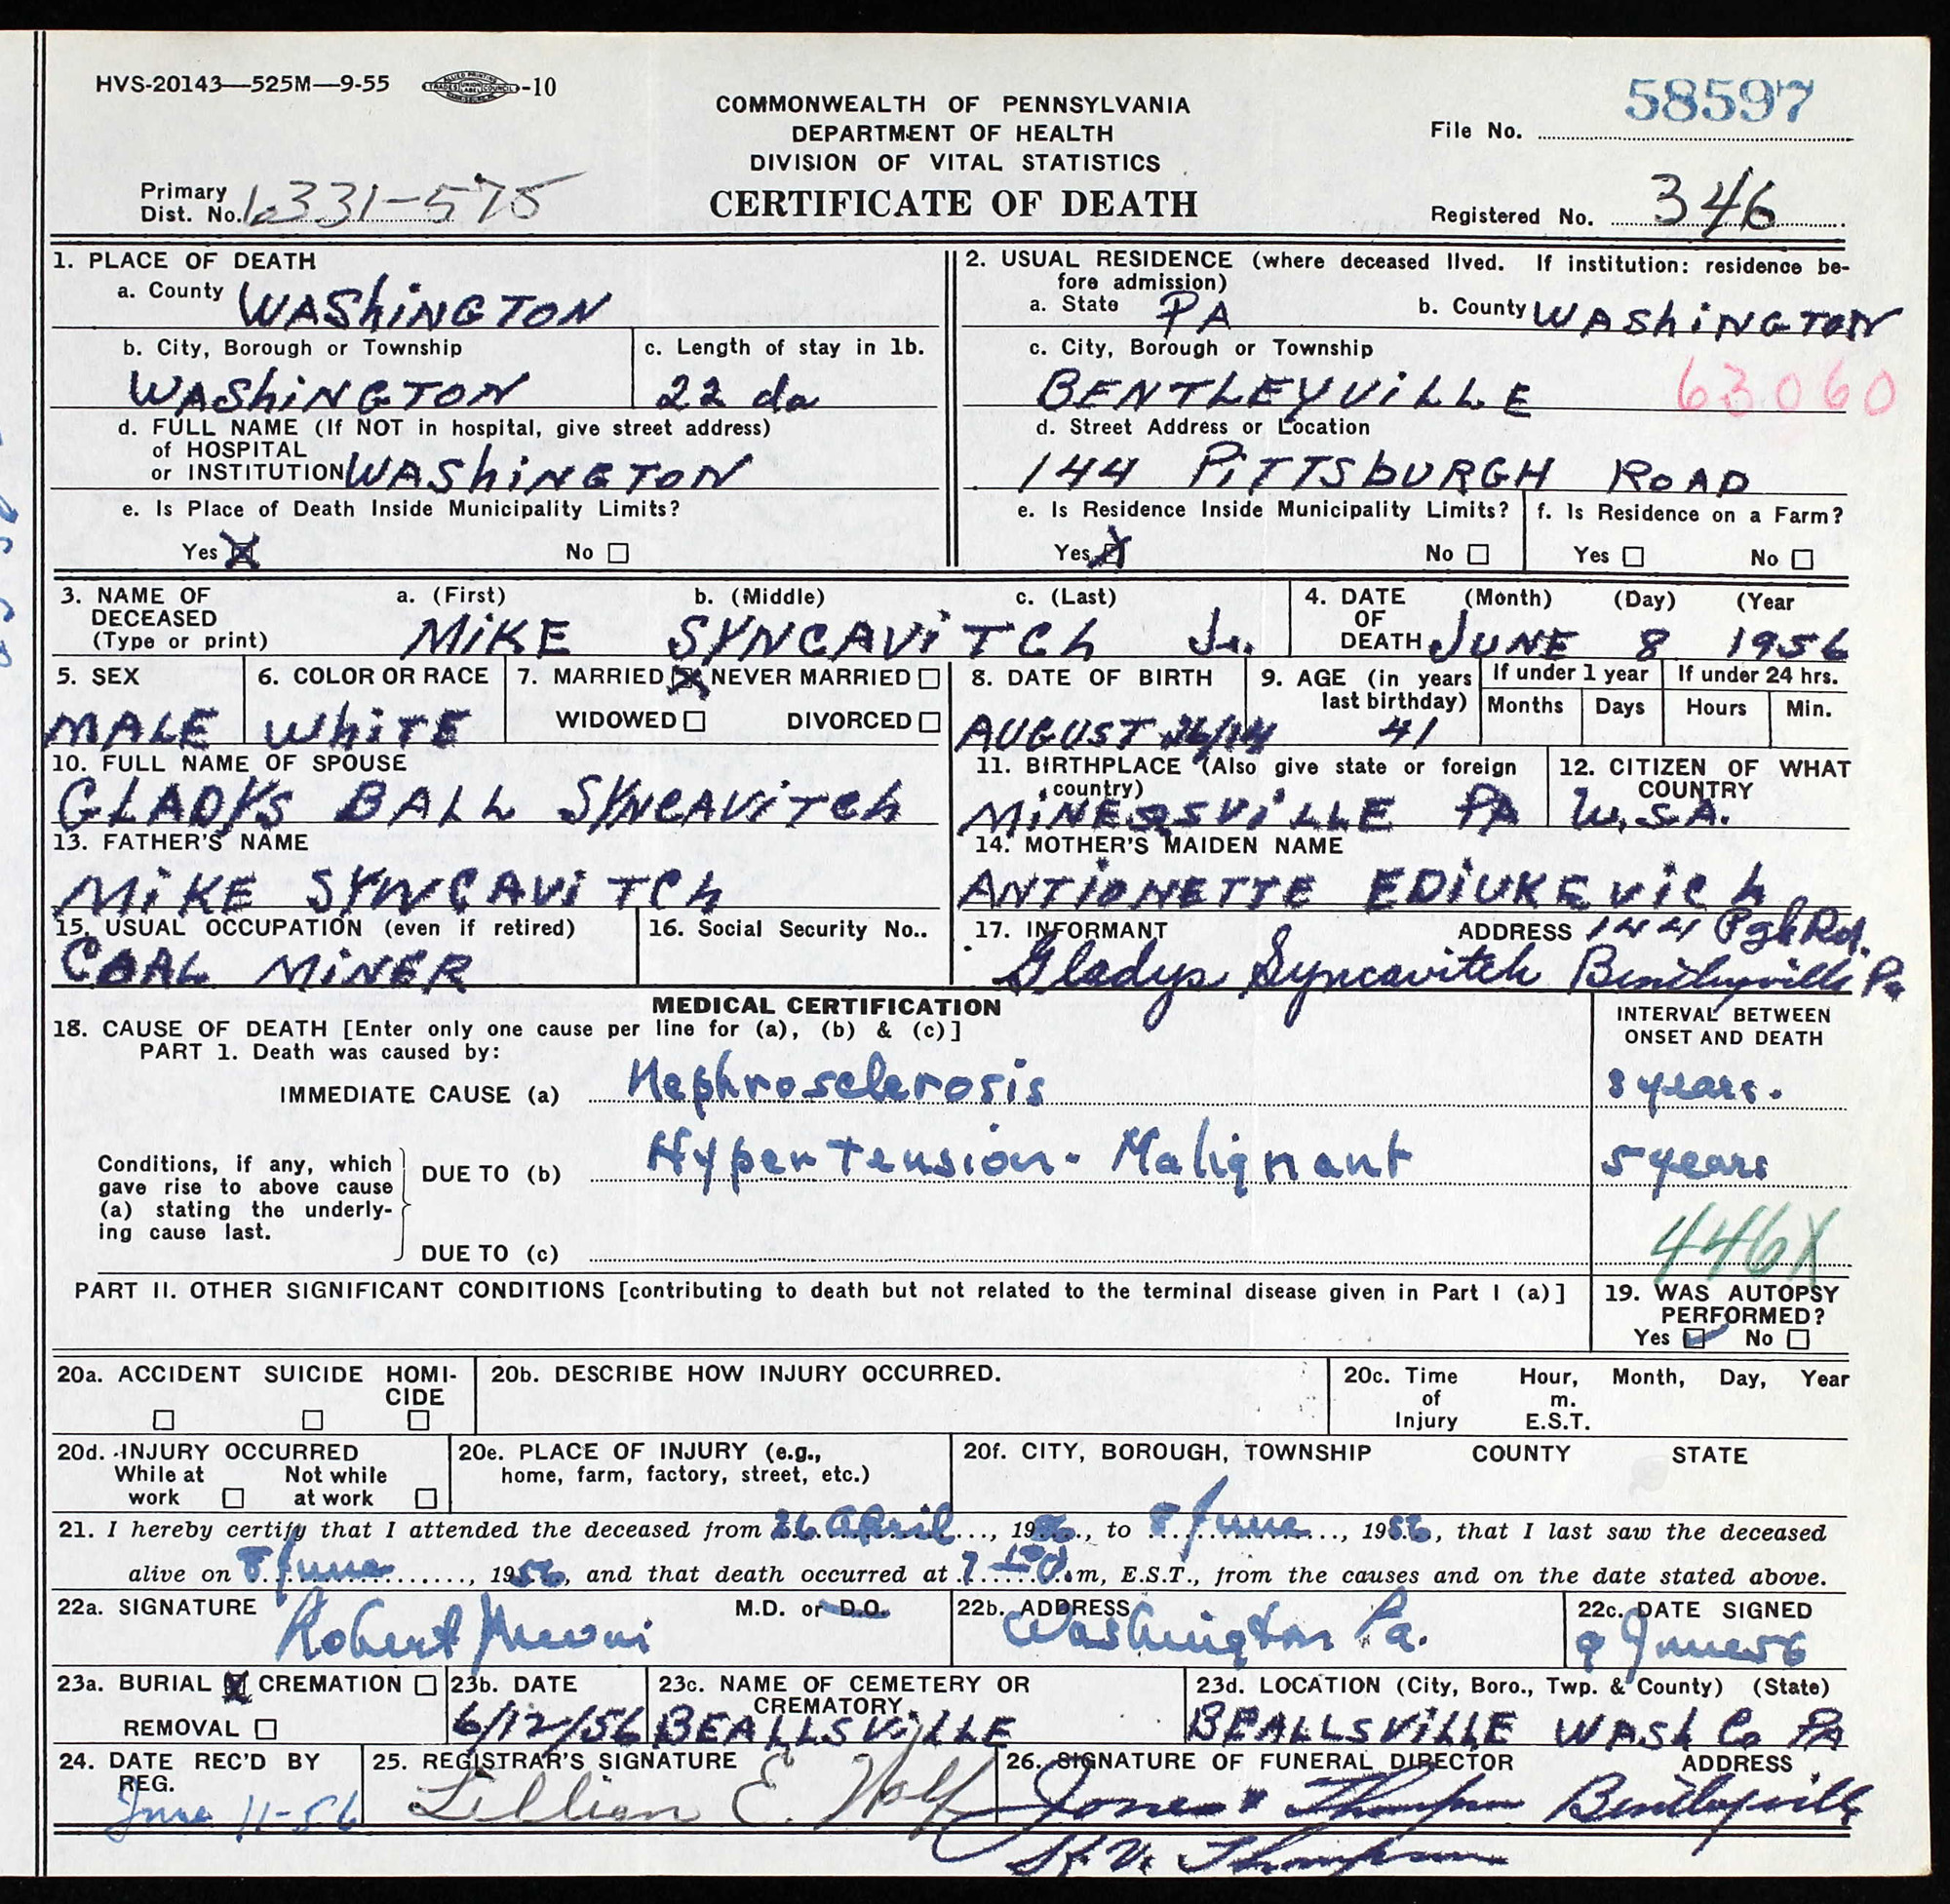 HVS-20143—525M—9-55 -10
58597
COMMONWEALTH OF PENNSYLVANIA
DEPARTMENT OF HEALTH
DIVISION OF VITAL STATISTICS
CERTIFICATE OF DEATH
File No.
Primary
Dist. No. 331-575
Registered No. 346
1. PLACE OF DEATH
a. County WAShiNGTON
b. City, Borough or Township
WAShiNGTON
c. Length of stay in 1b.
22 da
d. FULL NAME (If NOT in hospital, give street address)
of HOSPITAL
or INSTITUTION WAShiNGTON
e. Is Place of Death Inside Municipality Limits?
Yes No
2. USUAL RESIDENCE (where deceased lived. If institution: residence be-
fore admission)
a. State PA b. County WAShiNGTON
c. City, Borough or Township
BENTLEYViLLE 63060
d. Street Address or Location
144 PiTTSbURGH ROAD
e. Is Residence Inside Municipality Limits?
Yes No
f. Is Residence on a Farm?
Yes No
3. NAME OF
DECEASED
(Type or print)
a. (First) b. (Middle) c. (Last)
MiKE SYNCAViTCh Jr.
4. DATE
OF
DEATH
(Month) (Day) (Year
JUNE 8 1956
5. SEX
MALE
6. COLOR OR RACE
WhiTE
7. MARRIED NEVER MARRIED
WIDOWED DIVORCED
8. DATE OF BIRTH
AUGUST 26/14
9. AGE (in years
last birthday)
41
If under 1 year
Months Days
If under 24 hrs.
Hours Min.
10. FULL NAME OF SPOUSE
GLADYS BALL SYNCAViTCh
11. BIRTHPLACE (Also give state or foreign
country)
MiNERSViLLE PA
12. CITIZEN OF WHAT
COUNTRY
U.S.A.
13. FATHER'S NAME
MiKE SYNCAViTCh
14. MOTHER'S MAIDEN NAME
ANTIONETTE EDiUKEVICh
15. USUAL OCCUPATION (even if retired)
COAL MiNER
16. Social Security No..
17. INFORMANT ADDRESS 144 Pgh Rd.
Gladys Syncavitch Bentleyville Pa
MEDICAL CERTIFICATION
18. CAUSE OF DEATH [Enter only one cause per line for (a), (b) & (c)]
PART 1. Death was caused by:
INTERVAL BETWEEN
ONSET AND DEATH
IMMEDIATE CAUSE (a) Nephrosclerosis 8 years.
Conditions, if any, which
gave rise to above cause
(a) stating the underly-
ing cause last.
DUE TO (b) Hypertension - Malignant 5 years
DUE TO (c) 446X
PART II. OTHER SIGNIFICANT CONDITIONS [contributing to death but not related to the terminal disease given in Part I (a)]
19. WAS AUTOPSY
PERFORMED?
Yes No
20a. ACCIDENT SUICIDE HOMI-
CIDE
20b. DESCRIBE HOW INJURY OCCURRED.
20c. Time
of
Injury
Hour, Month, Day, Year
m.
E.S.T.
20d. INJURY OCCURRED
While at
work
Not while
at work
20e. PLACE OF INJURY (e.g.,
home, farm, factory, street, etc.)
20f. CITY, BOROUGH, TOWNSHIP COUNTY STATE
21. I hereby certify that I attended the deceased from 26 April, 1956, to 8 June, 1956, that I last saw the deceased
alive on 8 June, 1956, and that death occurred at m, E.S.T., from the causes and on the date stated above.
22a. SIGNATURE Robert M.D. or D.O.
22b. ADDRESS
Washington Pa.
22c. DATE SIGNED
9 June 56
23a. BURIAL CREMATION
REMOVAL
23b. DATE
6/12/56
23c. NAME OF CEMETERY OR
CREMATORY
BEALLSViLLE
23d. LOCATION (City, Boro., Twp. & County) (State)
BEALLSViLLE WASh Co PA
24. DATE REC'D BY
REG.
June 11-56
25. REGISTRAR'S SIGNATURE
Lillian E.
26. SIGNATURE OF FUNERAL DIRECTOR ADDRESS
Jones & Thompson Bentleyville
Thompson